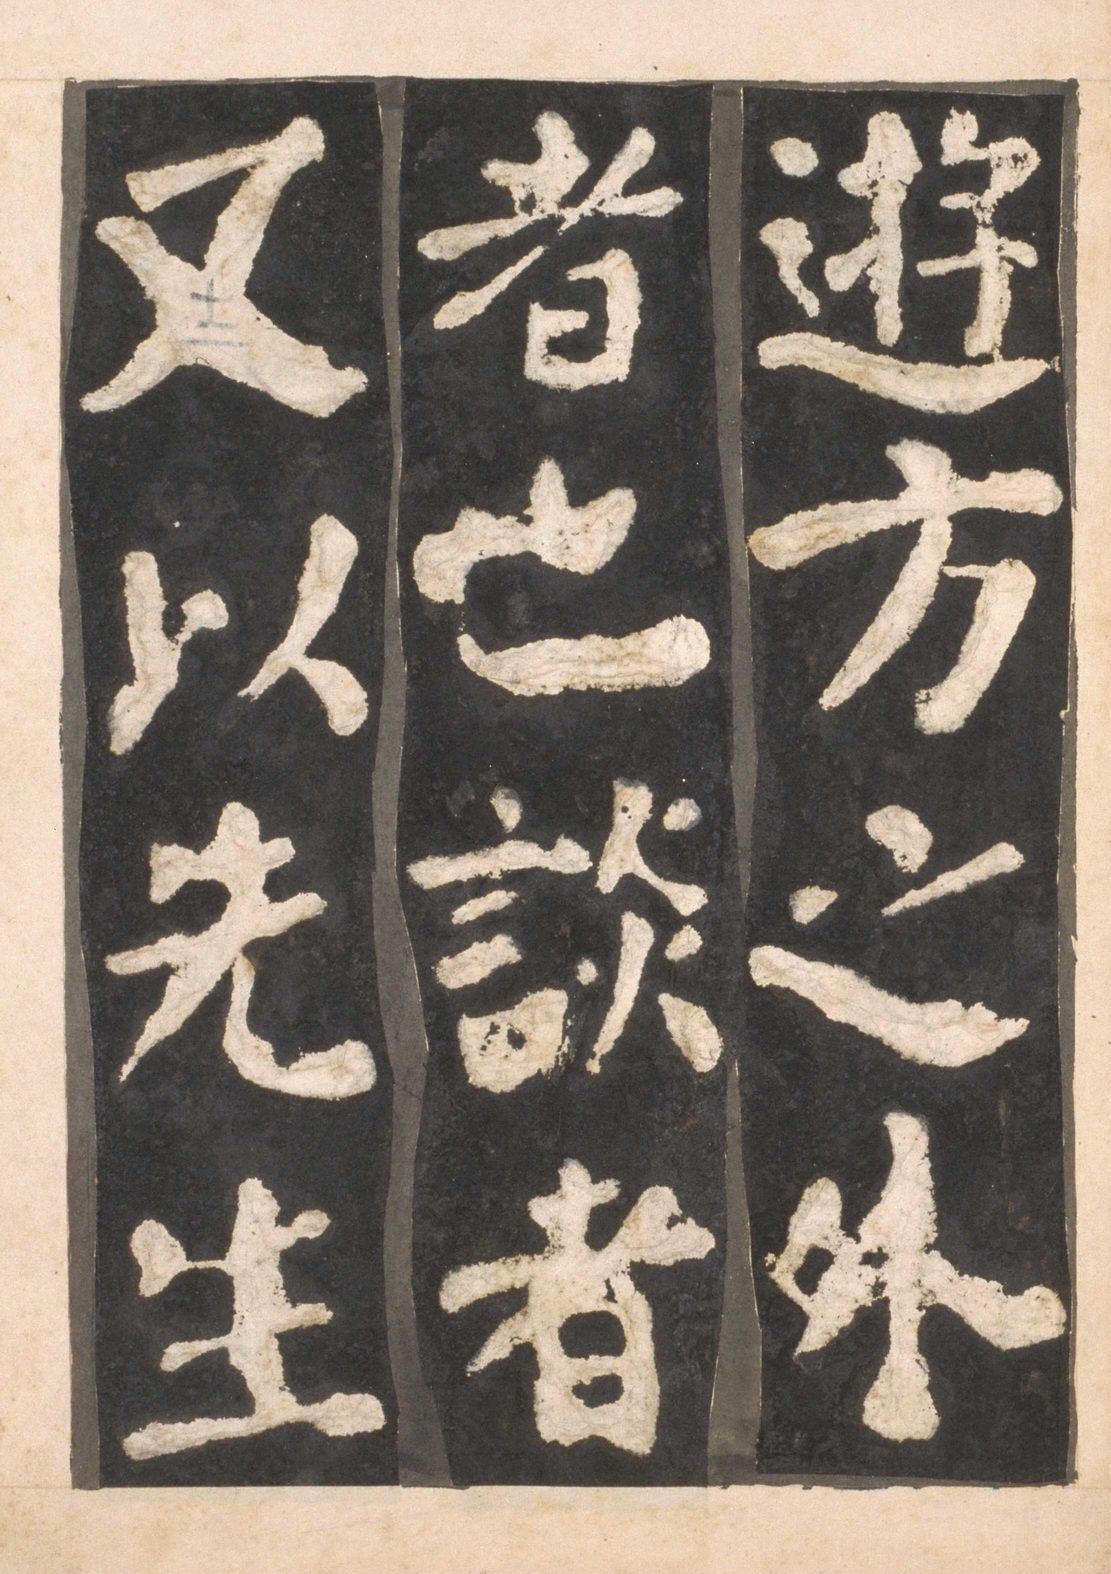 遊方之外
者已談者
又以先生